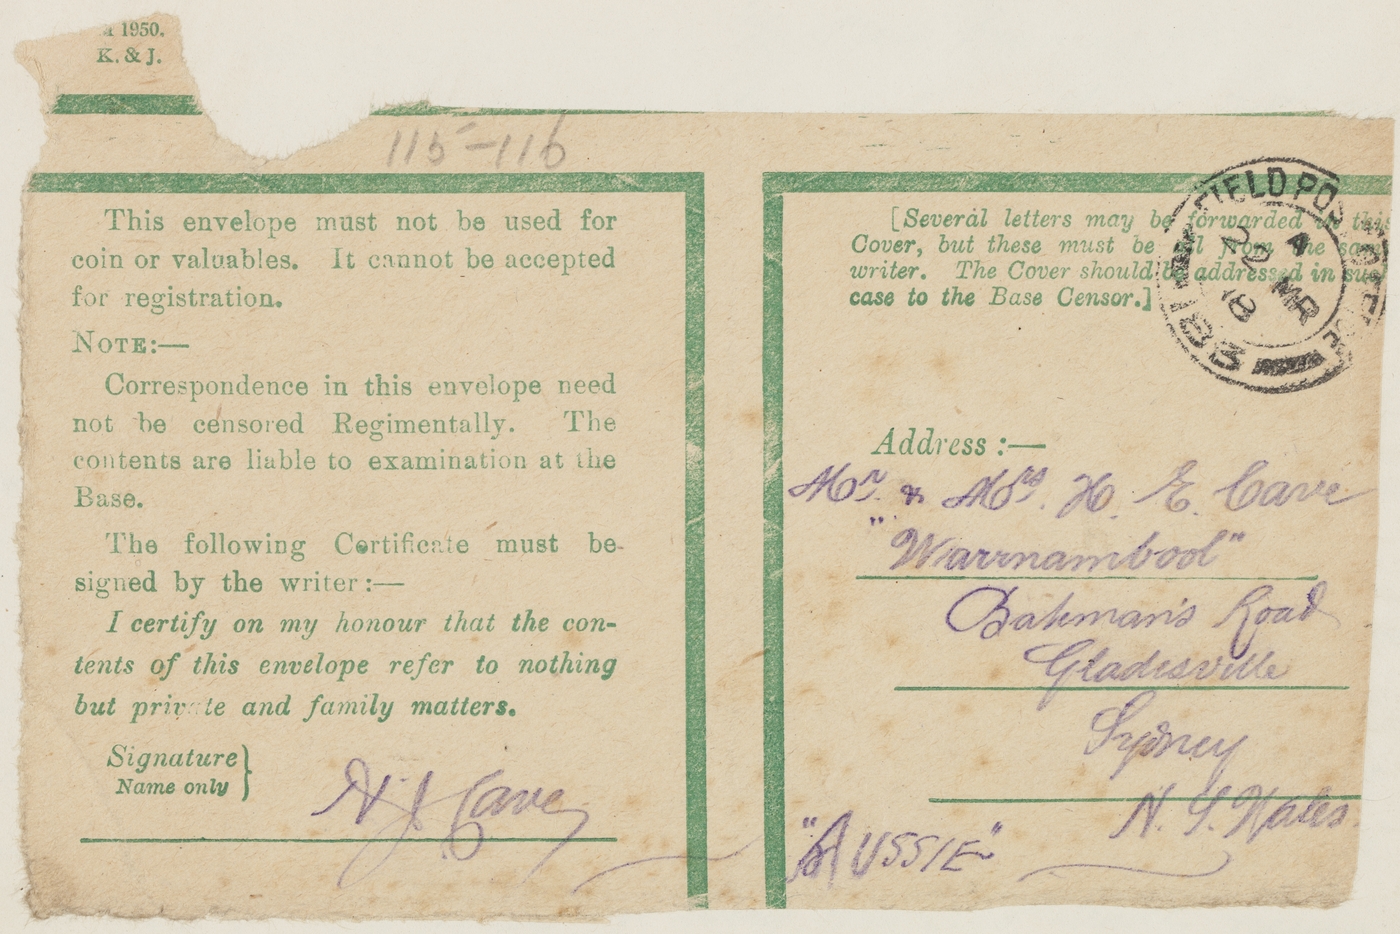 1950.
K. & J.
115-116
This envelope must not be used for
coin or valuables. It cannot be accepted
for registration.
NOTE:—
Correspondence in this envelope need
not be censored Regimentally. The
contents are liable to examination at the
Base.
The following Certificate must be
signed by the writer:—
I certify on my honour that the con-
tents of this envelope refer to nothing
but private and family matters.
Signature
Name only
H J Cave
[Several letters may be forwarded in this
Cover, but these must be all from the same
writer. The Cover should be addressed in such
case to the Base Censor.]
FIELD POST OFFICE
A
22 MR
18
3BI
Address :—
Mr. & Mrs. H. E. Cave
"Warrnambool"
Batemans Road
Gladesville
Sydney
N. S. Wales
"AUSSIE"